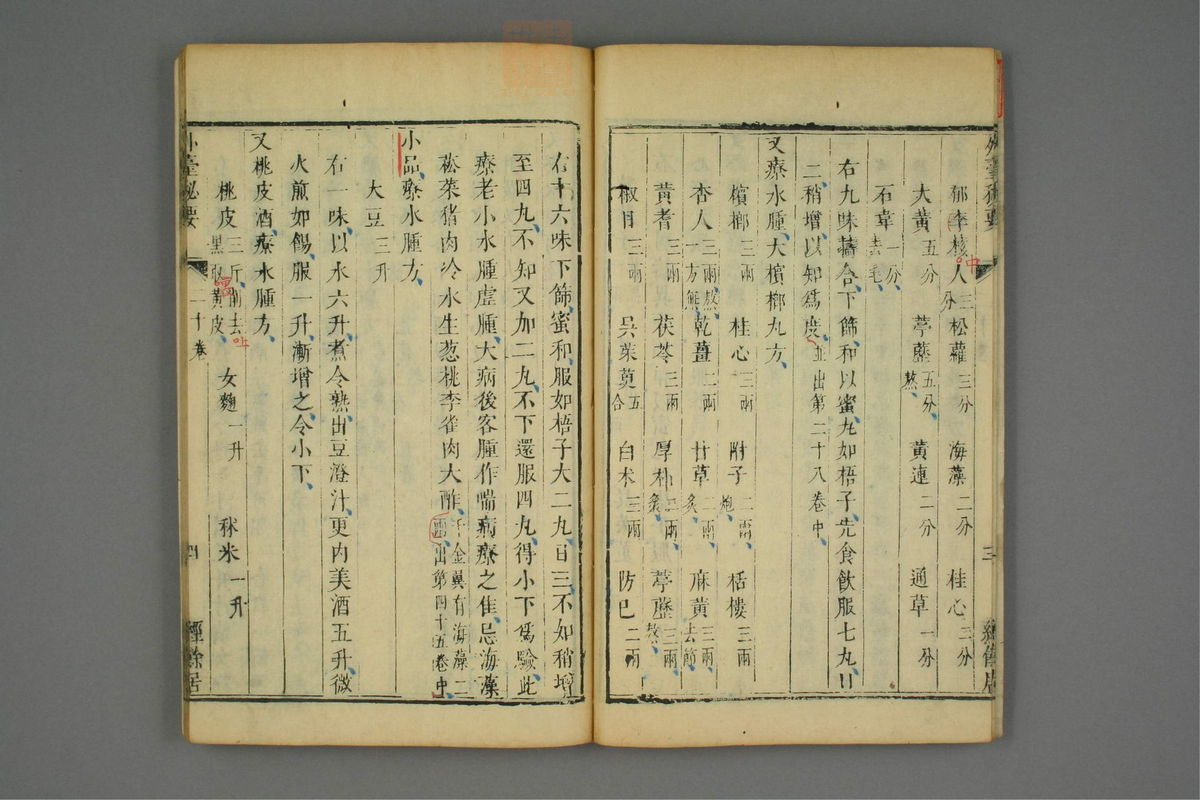 外臺秘要 三 經餘居
郁李核人三分 松蘿三分 海藻二分 桂心三分
大黃五分 葶藶五分熬 黃連二分 通草一分
石韋一分去毛
右九味擣合下篩和以蜜丸如梧子先食飲服七丸日
二稍增以知爲度並出第二十八卷中
又療水腫大檳榔丸方
檳榔三兩 桂心三兩 附子二兩炮 栝樓三兩
杏人三兩熬一方無 乾薑二兩 甘草二兩炙 麻黃三兩去節
黃耆三兩 茯苓三兩 厚朴二兩炙 葶藶三兩熬
椒目三兩 吳茱萸五合 白朮三兩 防巳二兩
右十六味下篩蜜和服如梧子大二丸日三不知稍增
至四丸不知又加二丸不下還服四丸得小下爲驗此
療老小水腫虛腫大病後客腫作喘病療之佳忌海藻
菘菜猪肉冷水生葱桃李雀肉大酢千金翼有海藻二兩出第四十五卷中
小品療水腫方
大豆三升
右一味以水六升煮令熟出豆澄汁更內美酒五升微
火煎如餳服一升漸增之令小下
又桃皮酒療水腫方
桃皮三斤削去黑取黃皮 女麴一升 秫米一升
外臺秘要 二十卷 四 經餘居
中